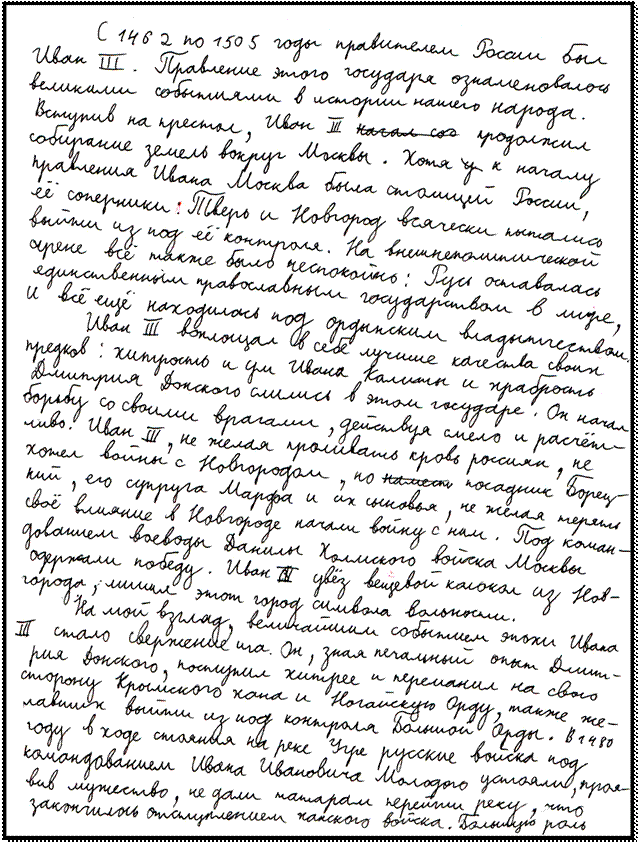 С 1462 по 1505 годы правителем России был
Иван III. Правление этого государя ознаменовалось
великими событиями в истории нашего народа.
Вступив на престол, Иван III начал соб продолжил
собирание земель вокруг Москвы. Хотя у к началу
правления Ивана Москва была столицей России,
её соперники: Тверь и Новгород всячески пытались
выйти из под её контроля. На внешнеполитической
арене всё также было неспокойно: Русь оставалась
единственным православным государством в мире,
и всё ещё находилось под ордынским владычеством.
Иван III воплощал в себе лучшие качества своих
предков: хитрость и ум Ивана Калиты и храбрость
Дмитрия Донского слились в этом государе. Он начал
борьбу со своими врагами, действуя смело и расчёт-
ливо. Иван III, не желая проливать кровь россиян, не
хотел войны с Новгородом, но посадник Борец-
кий, его супруга Марфа и их сыновья, не желая терять
своё влияние в Новгороде начали войну с ним. Под коман-
дованием воеводы Данилы Холмского войска Москвы
одержали победу. Иван III увёз вечевой колокол из Нов-
города, лишил этот город символа вольности.
На мой взгляд, величайшим событием эпохи Ивана
III стало свержение ига. Он, зная печальный опыт Дмит-
рия Донского, поступил хитрее и переманил на свою
сторону Крымского хана и Ногайскую Орду, также же-
лавших выйти из под контроля Большой Орды. В 1480
году в ходе стояния на реке Угре русские войска под
командованием Ивана Ивановича Молодого устояли, проя-
вив мужество, не дали татарам перейти реку, что
закончилось отступлением ханского войска. Большую роль